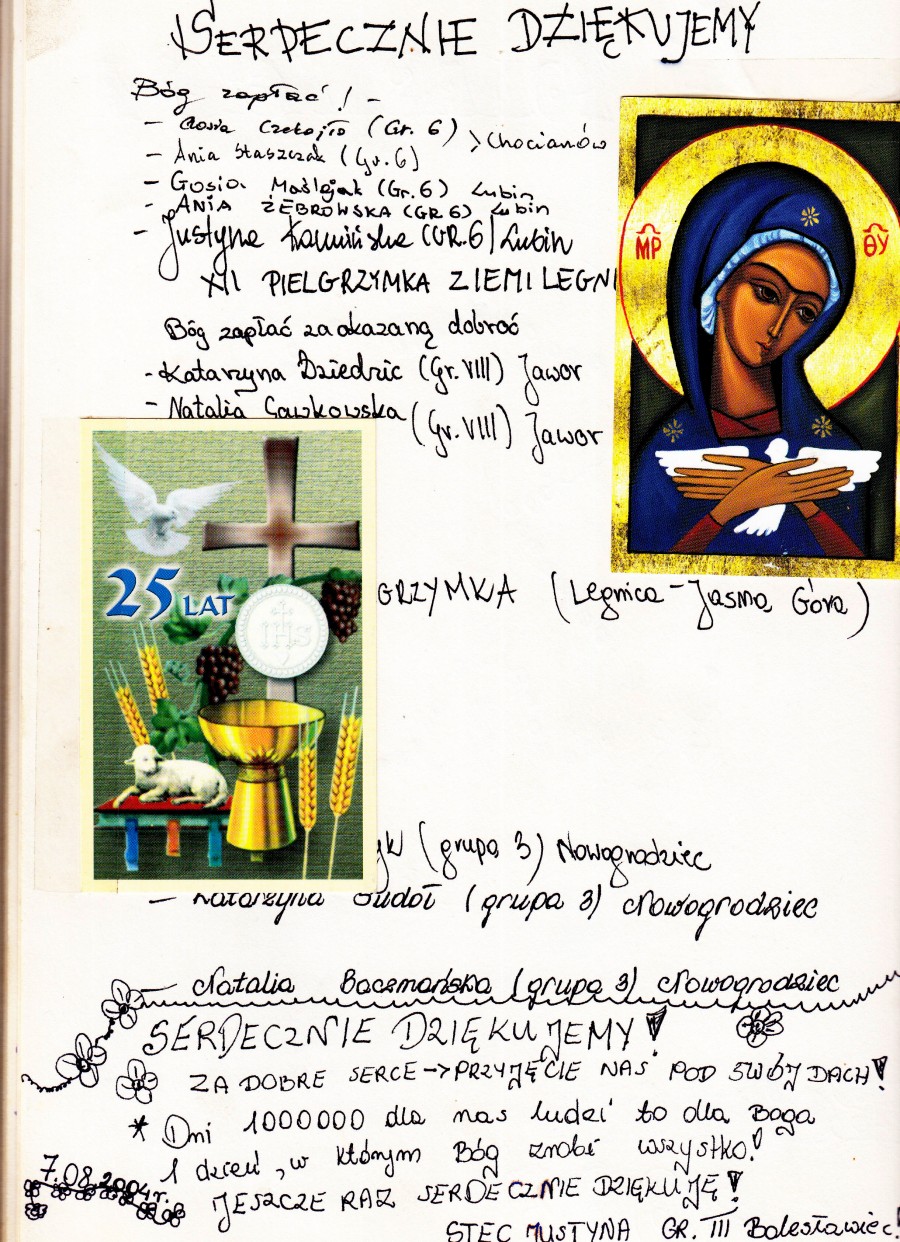 SERDECZNIE DZIĘKUJEMY
Bóg zapłać! -
- Czekajło (Gr. 6) > Chocianów
- Ania Staszczak (Gr. 6)
- Gosia Maślejak (Gr. 6) Lubin
- ANIA ŻEBROWSKA (GR 6) Lubin
- Justyna Kamińska (GR. 6) Lubin
XI PIELGRZYMKA ZIEMI LEGNI
Bóg zapłać za okazaną dobroć
- Katarzyna Dziedzic (Gr. VIII) Jawor
- Natalia Sawkowska (Gr. VIII) Jawor
MP ΘY
25 LAT
IHS
GRZYMKA (Legnica - Jasna Góra)
yk (grupa 3) Nowogrodziec
- Katarzyna Sudoł (grupa 3) Nowogrodziec
- Natalia Baczmańska (grupa 3) Nowogrodziec
SERDECZNIE DZIĘKUJEMY!
ZA DOBRE SERCE -> PRZYJĘCIE NAS POD SWÓJ DACH!
* Dni 1000000 dla nas ludzi to dla Boga
1 dzień, w którym Bóg zrobi wszystko!
7.08.2004r.
JESZCZE RAZ SERDECZNIE DZIĘKUJĘ!
STEC JUSTYNA GR. III Bolesławiec!